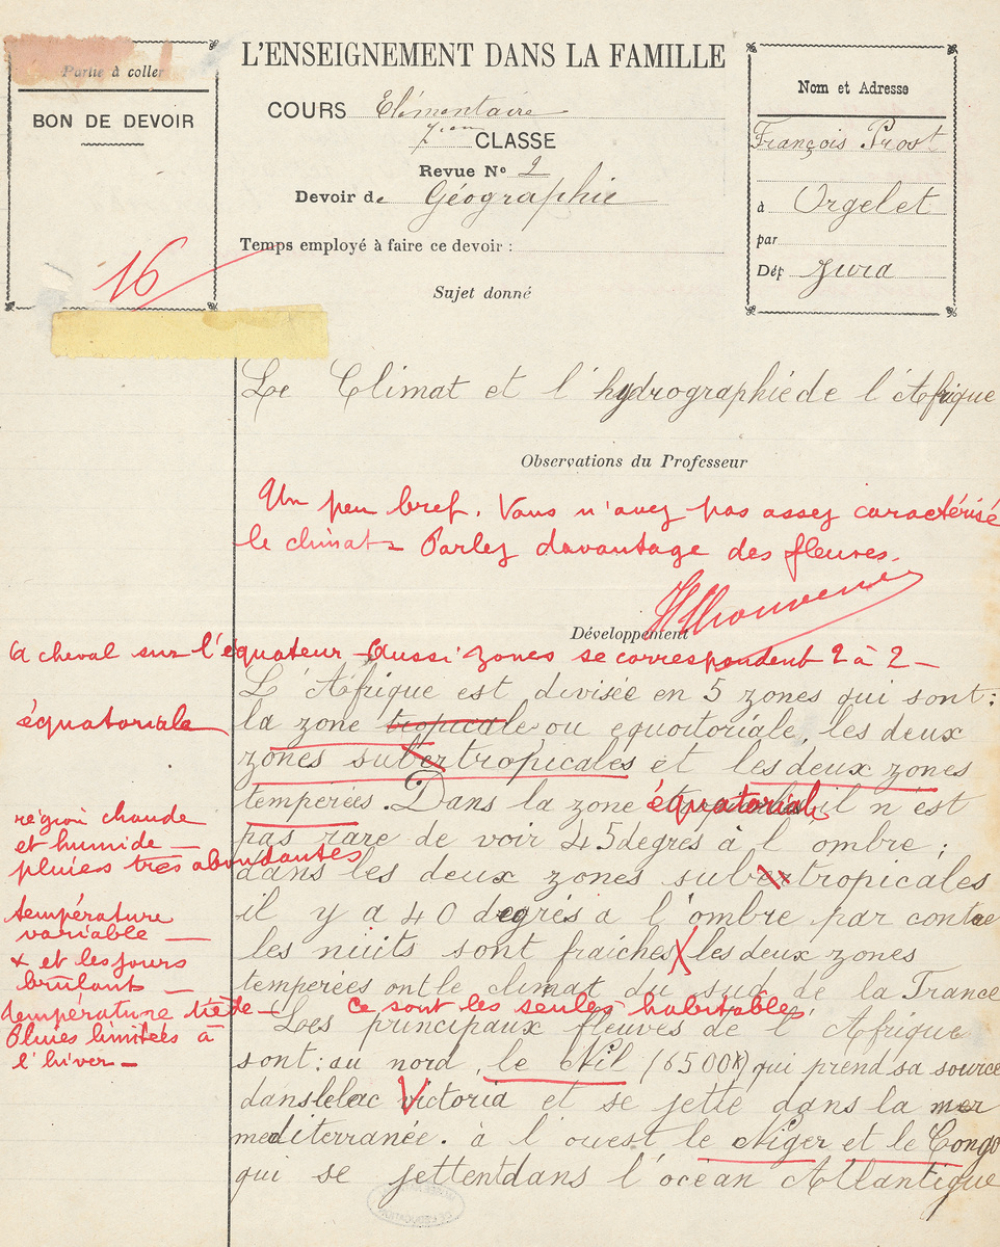 Partie à coller
BON DE DEVOIR
16
L'ENSEIGNEMENT DANS LA FAMILLE
COURS Elémentaire
7ième CLASSE
Revue No 2
Devoir de Géographie
Temps employé à faire ce devoir :
Sujet donné
Nom et Adresse
François Prost
à Orgelet
par
Dép Jura
Le Climat et l'hydrographie de l'Afrique
Observations du Professeur
Un peu bref. Vous n'avez pas assez caractérisé
le climat - Parlez davantage des fleuves.
Développement
à cheval sur l'équateur - Aussi zones se correspondent 2 à 2 -
L'Afrique est divisée en 5 zones qui sont :
équatoriale
la zone tropicale ou equatoriale, les deux
zones subertropicales et les deux zones
temperées. Dans la zone équatoriale il n'est
région chaude
et humide -
pluies très abondantes
pas rare de voir 45 degrés à l'ombre ;
dans les deux zones subertropicales
température
variable -
il y a 40 degrés a l'ombre par contre
+ et les jours
brûlants -
les nuits sont fraiches X les deux zones
temperées ont le climat du sud de la France
température tiède - ce sont les seules habitables
Pluies limitées à
l'hiver -
Les principaux fleuves de l'Afrique
sont : au nord, le Nil (6500K) qui prend sa source
dans le lac Victoria et se jette dans la mer
mediterranée. à l'ouest le Niger et le Congo
qui se jettent dans l'océan Atlantique